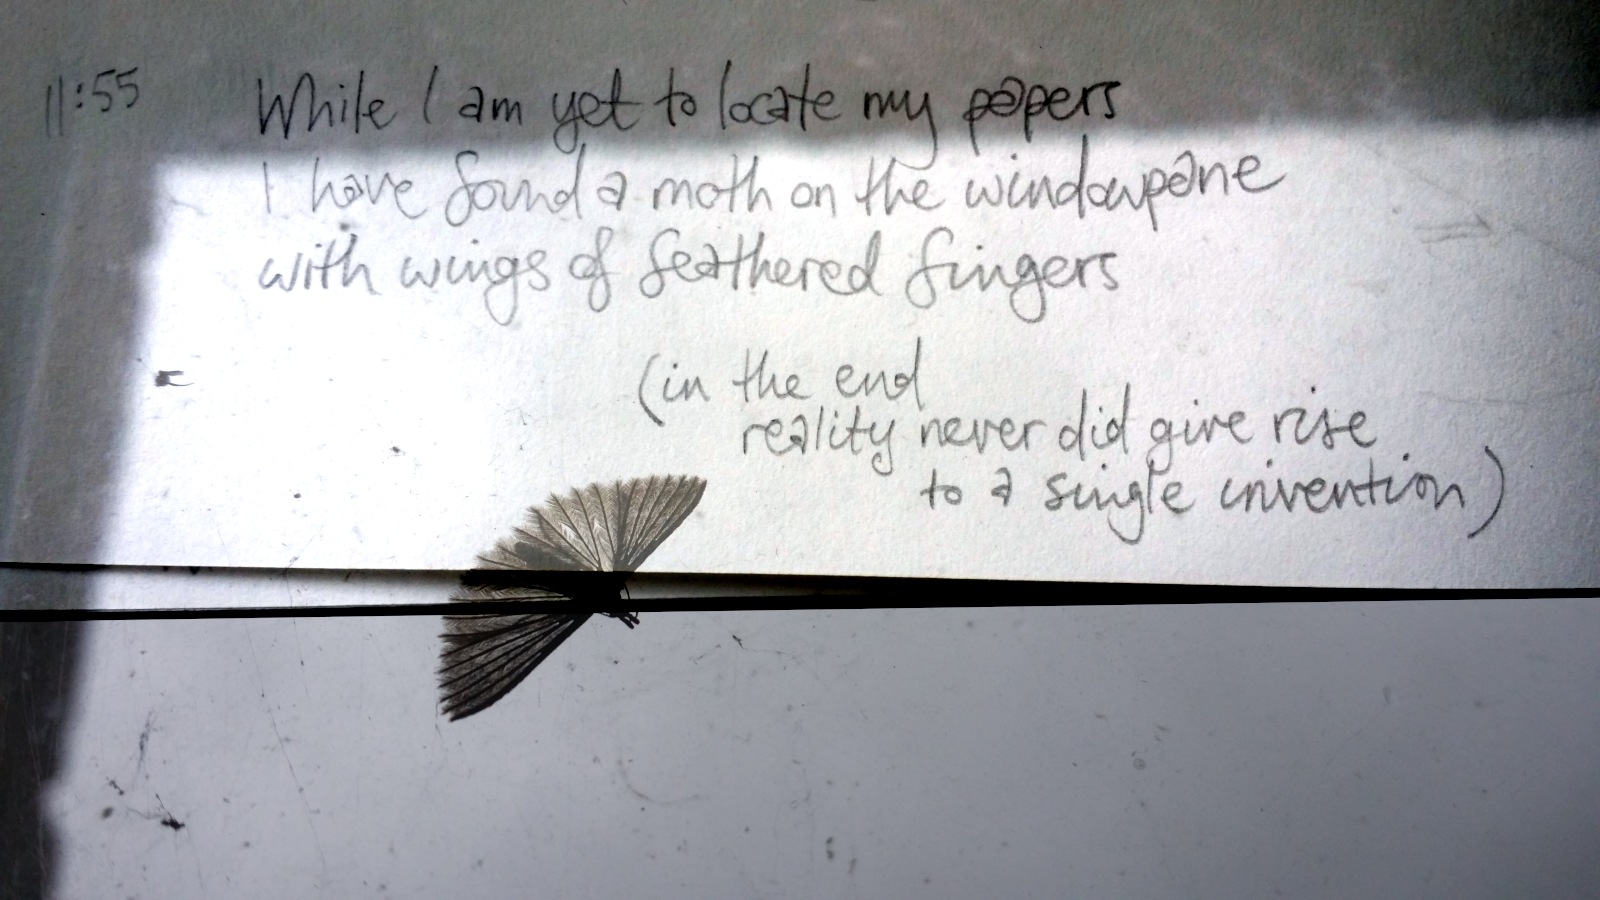 11:55 While I am yet to locate my papers
I have found a moth on the windowpane
with wings of feathered fingers
(in the end
reality never did give rise
to a single invention)